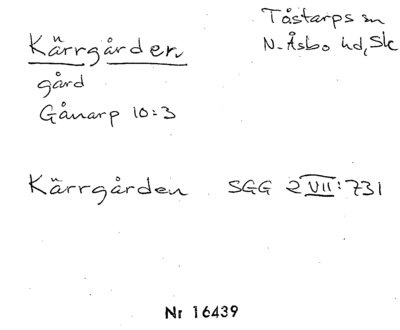 Kärrgården
gård
Gånarp 10:3
Tåstarps sn
N. Åsbo hd, Sk
Kärrgården SGG 2 VII:731
Nr 16439